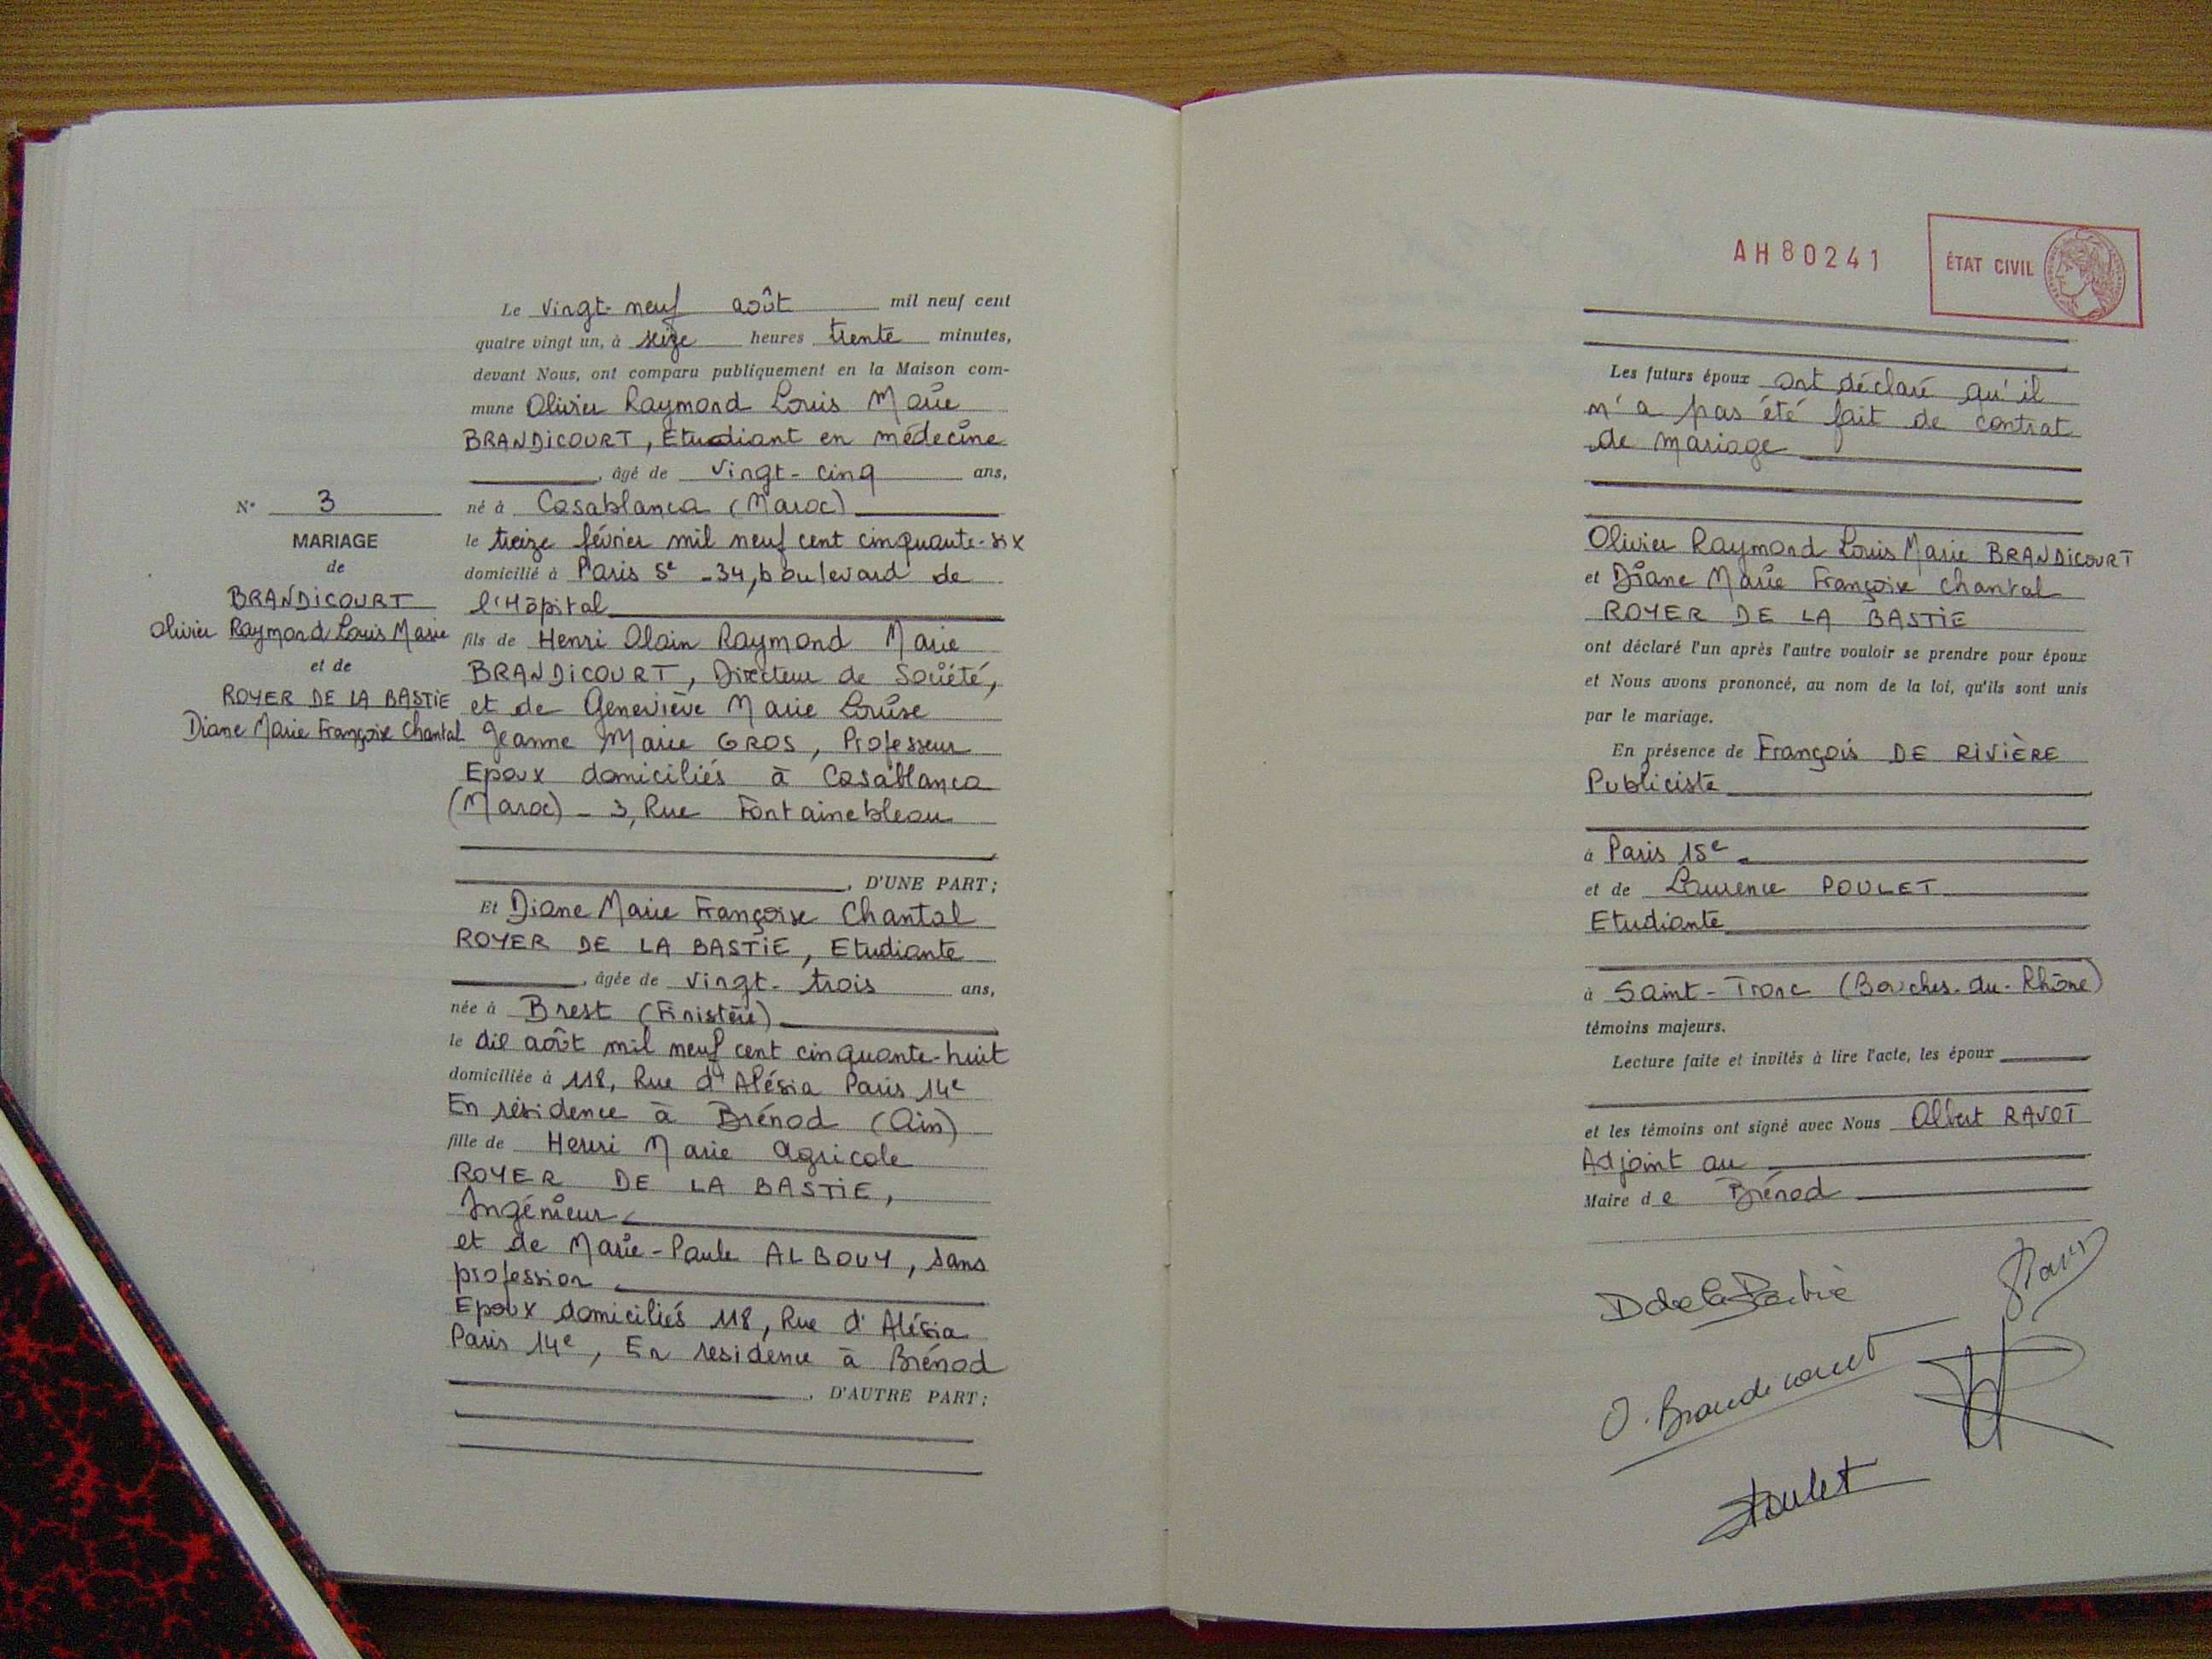 Le vingt-neuf août mil neuf cent
quatre vingt un, à seize heures trente minutes,
devant Nous, ont comparu publiquement en la Maison com-
mune Olivier Raymond Louis Marie
BRANDICOURT, Etudiant en médecine
, âgé de vingt-cinq ans,
né à Casablanca (Maroc)
le treize février mil neuf cent cinquante-six
domicilié à Paris 5e - 34, boulevard de
l'Hôpital
fils de Henri Alain Raymond Marie
BRANDICOURT, Directeur de Société,
et de Geneviève Marie Louise
Jeanne Marie GROS, Professeur
Epoux domiciliés à Casablanca
(Maroc) - 3, Rue Fontainebleau
, D'UNE PART;
Et Diane Marie Françoise Chantal
ROYER DE LA BASTIE, Etudiante
, âgée de vingt-trois ans,
née à Brest (Finistère)
le dix août mil neuf cent cinquante-huit
domiciliée à 118, Rue d'Alésia Paris 14e
En résidence à Brénod (Ain)
fille de Henri Marie Agricole
ROYER DE LA BASTIE,
Ingénieur
et de Marie-Paule ALBOUY, sans
profession
Epoux domiciliés 118, Rue d'Alésia
Paris 14e, En residence à Brénod
, D'AUTRE PART;
N° 3
MARIAGE
de
BRANDICOURT
Olivier Raymond Louis Marie
et de
ROYER DE LA BASTIE
Diane Marie Françoise Chantal
AH80241
ÉTAT CIVIL
Les futurs époux ont déclaré qu'il
n'a pas été fait de contrat
de mariage
Olivier Raymond Louis Marie BRANDICOURT
et Diane Marie Françoise Chantal
ROYER DE LA BASTIE
ont déclaré l'un après l'autre vouloir se prendre pour époux
et Nous avons prononcé, au nom de la loi, qu'ils sont unis
par le mariage.
En présence de François DE RIVIÈRE
Publiciste
à Paris 15e
et de Laurence POULET
Etudiante
à Saint-Tronc (Bouches-du-Rhône)
témoins majeurs.
Lecture faite et invités à lire l'acte, les époux
et les témoins ont signé avec Nous Albert RAVOT
Adjoint au
Maire de Brénod
D de la Bastie
O. Brandicourt
Poulet